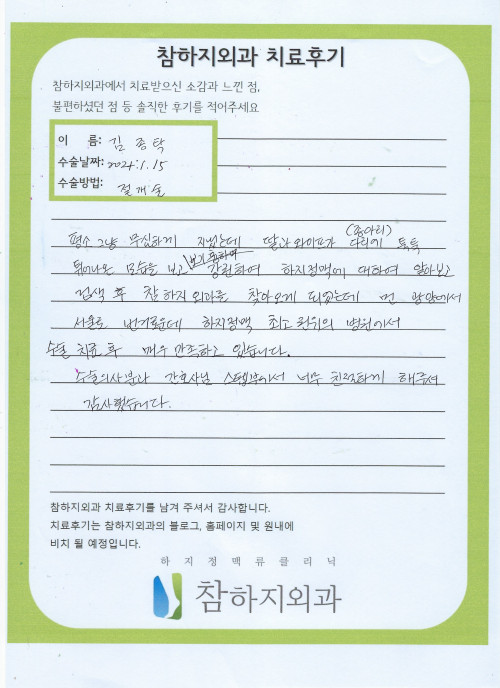 참하지외과 치료후기
참하지외과에서 치료받으신 소감과 느낀 점,
불편하셨던 점 등 솔직한 후기를 적어주세요
이 름: 김종탁
수술날짜: 2024.1.15
수술방법: 절개술
(종아리)
평소 그냥 무심하게 지냈는데 딸과 와이프가 다리에 툭툭
보기 흉하여
튀어나온 모습을 보고 강권하여 하지정맥에 대하여 알아보고
검색 후 참하지외과를 찾아오게 되었는데 먼 광양에서
서울로 번거로운데 하지정맥 최고 권위의 병원에서
수술 치료 후 매우 만족하고 있습니다.
수술의사분과 간호사님 스텝분께서 너무 친절하게 해주셔
감사했습니다.
참하지외과 치료후기를 남겨 주셔서 감사합니다.
치료후기는 참하지외과의 블로그, 홈페이지 및 원내에
비치 될 예정입니다.
하지정맥류클리닉
참하지외과